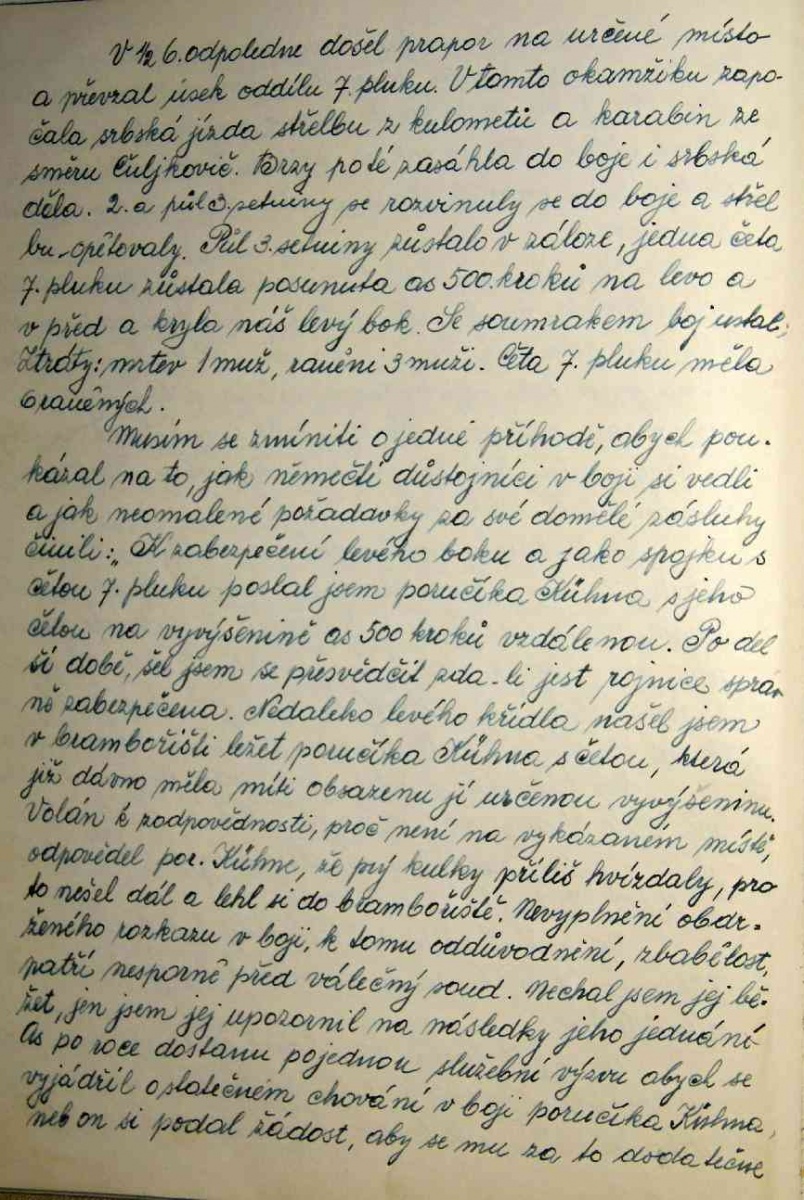 V ½ 6. odpoledne došel prapor na určené místo
a převzal úsek oddílu 7. pluku. V tomto okamžiku zapo-
čala srbská jízda střelbu z kulometů a karabin ze
směru Čuljkovič. Brzy poté zasáhla do boje i srbská
děla. 2. a půl 3. setniny se rozvinuly se do boje a střel
bu opětovaly. Půl 3. setniny zůstalo v záloze, jedna četa
7. pluku zůstala posunuta as 500. kroků na levo a
v před a kryla náš levý bok. Se soumrakem boj ustal.
Ztráty: mrtev 1 muž, raněni 3 muži. Četa 7. pluku měla
6 raněných.
Musím se zmíniti o jedné příhodě, abych pou-
kázal na to, jak němečtí důstojníci v boji si vedli
a jak neomalené požadavky za své domělé zásluhy
činili: „K zabezpečení levého boku a jako spojku s
četou 7. pluku poslal jsem poručíka Kühna s jeho
četou na vyvýšenině as 500 kroků vzdálenou. Po del
ší době, šel jsem se přesvědčit zda-li jest rojnice sprá-
ně zabezpečena. Nedaleko levého křídla našel jsem
v bramboříšti ležet poručíka Kühna s četou, která
již dávno měla míti obsazenu jí určenou vyvýšeninu.
Volán k zodpovědnosti, proč není na vykázaném místě,
odpověděl por. Kühne, že prý kulky příliš hvízdaly, pro
to nešel dál a lehl si do bramboříště. Nevyplnění obdr-
ženého rozkazu v boji, k tomu oddůvodnění, zbabělost,
patří nesporně před válečný soud. Nechal jsem jej bě-
žet, jen jsem jej upozornil na následky jeho jednání
As po roce dostanu pojednou služební výzvu abych se
vyjádřil o statečném chování v boji poručíka Kühna,
neb on si podal žádost, aby se mu za to dodatečne